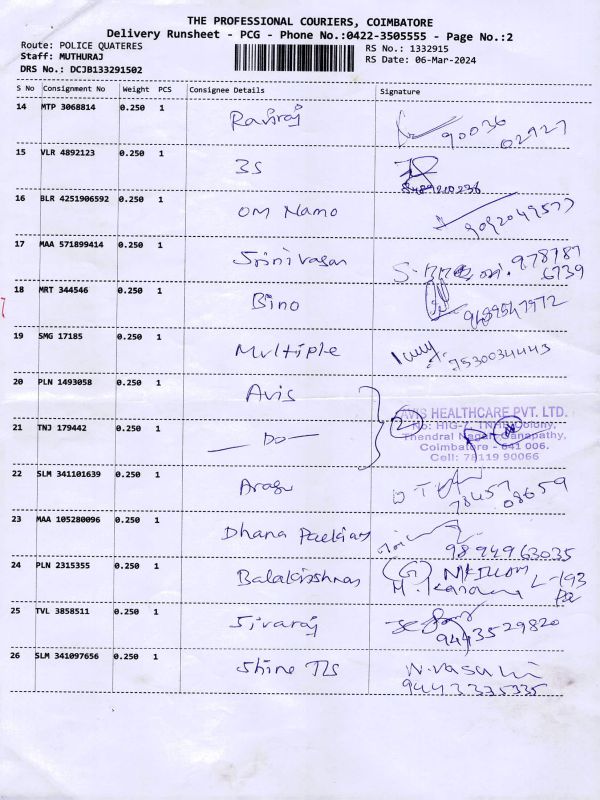 THE PROFESSIONAL COURIERS, COIMBATORE
Delivery Runsheet - PCG - Phone No.:0422-3505555 - Page No.:2
Route: POLICE QUATERES
RS No.: 1332915
Staff: MUTHURAJ
RS Date: 06-Mar-2024
DRS No.: DCJB133291502
S No Consignment No Weight PCS Consignee Details Signature
14 MTP 3068814 0.250 1 Raviraj 90036
02927
15 VLR 4892123 0.250 1 3S
16 BLR 4251906592 0.250 1 OM Namo 9092049577
17 MAA 571899414 0.250 1 Srinivasan 978787
6739
18 MRT 344546 0.250 1 Bino
19 SMG 17185 0.250 1 Multiple 7530034443
20 PLN 1493058 0.250 1 Avis
AVIS HEALTHCARE PVT. LTD.
21 TNJ 179442 0.250 1 — Do —
No: HIG-7, TNHB Colony,
Thendral Nagar, Ganapathy,
Coimbatore - 641 006.
Cell: 78119 90066
22 SLM 341101639 0.250 1 Arasu 78457
08659
23 MAA 105280096 0.250 1 Dhana 9894963035
24 PLN 2315355 0.250 1 Balakrishnan L-193
25 TVL 3858511 0.250 1 Sivaraj 9443529820
26 SLM 341097656 0.250 1 Shine TLS N.Vasuki
9443335335